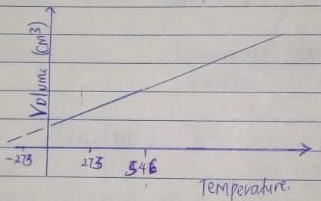 Volume (cm³)
-273 273 546
Temperature.